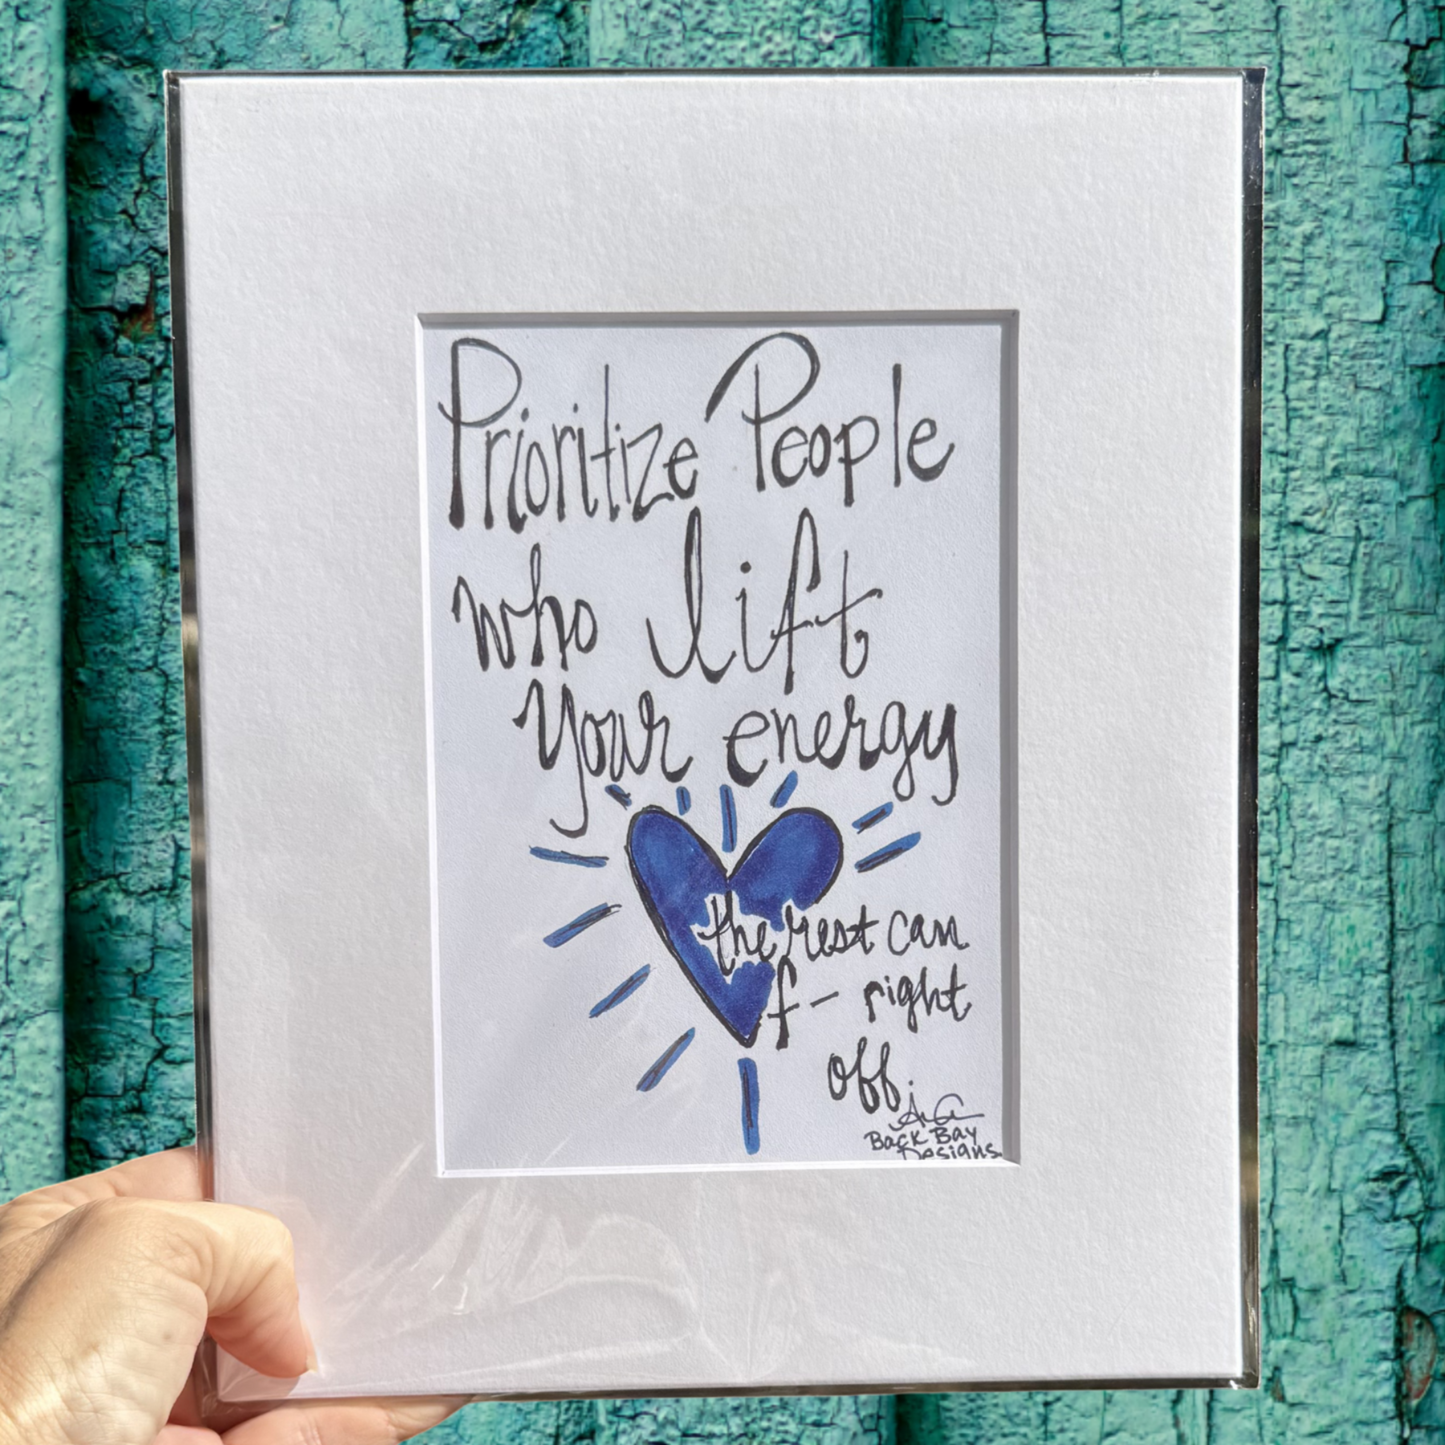 Prioritize People
who lift
your energy
the rest can
f- right
off
Back Bay
Designs